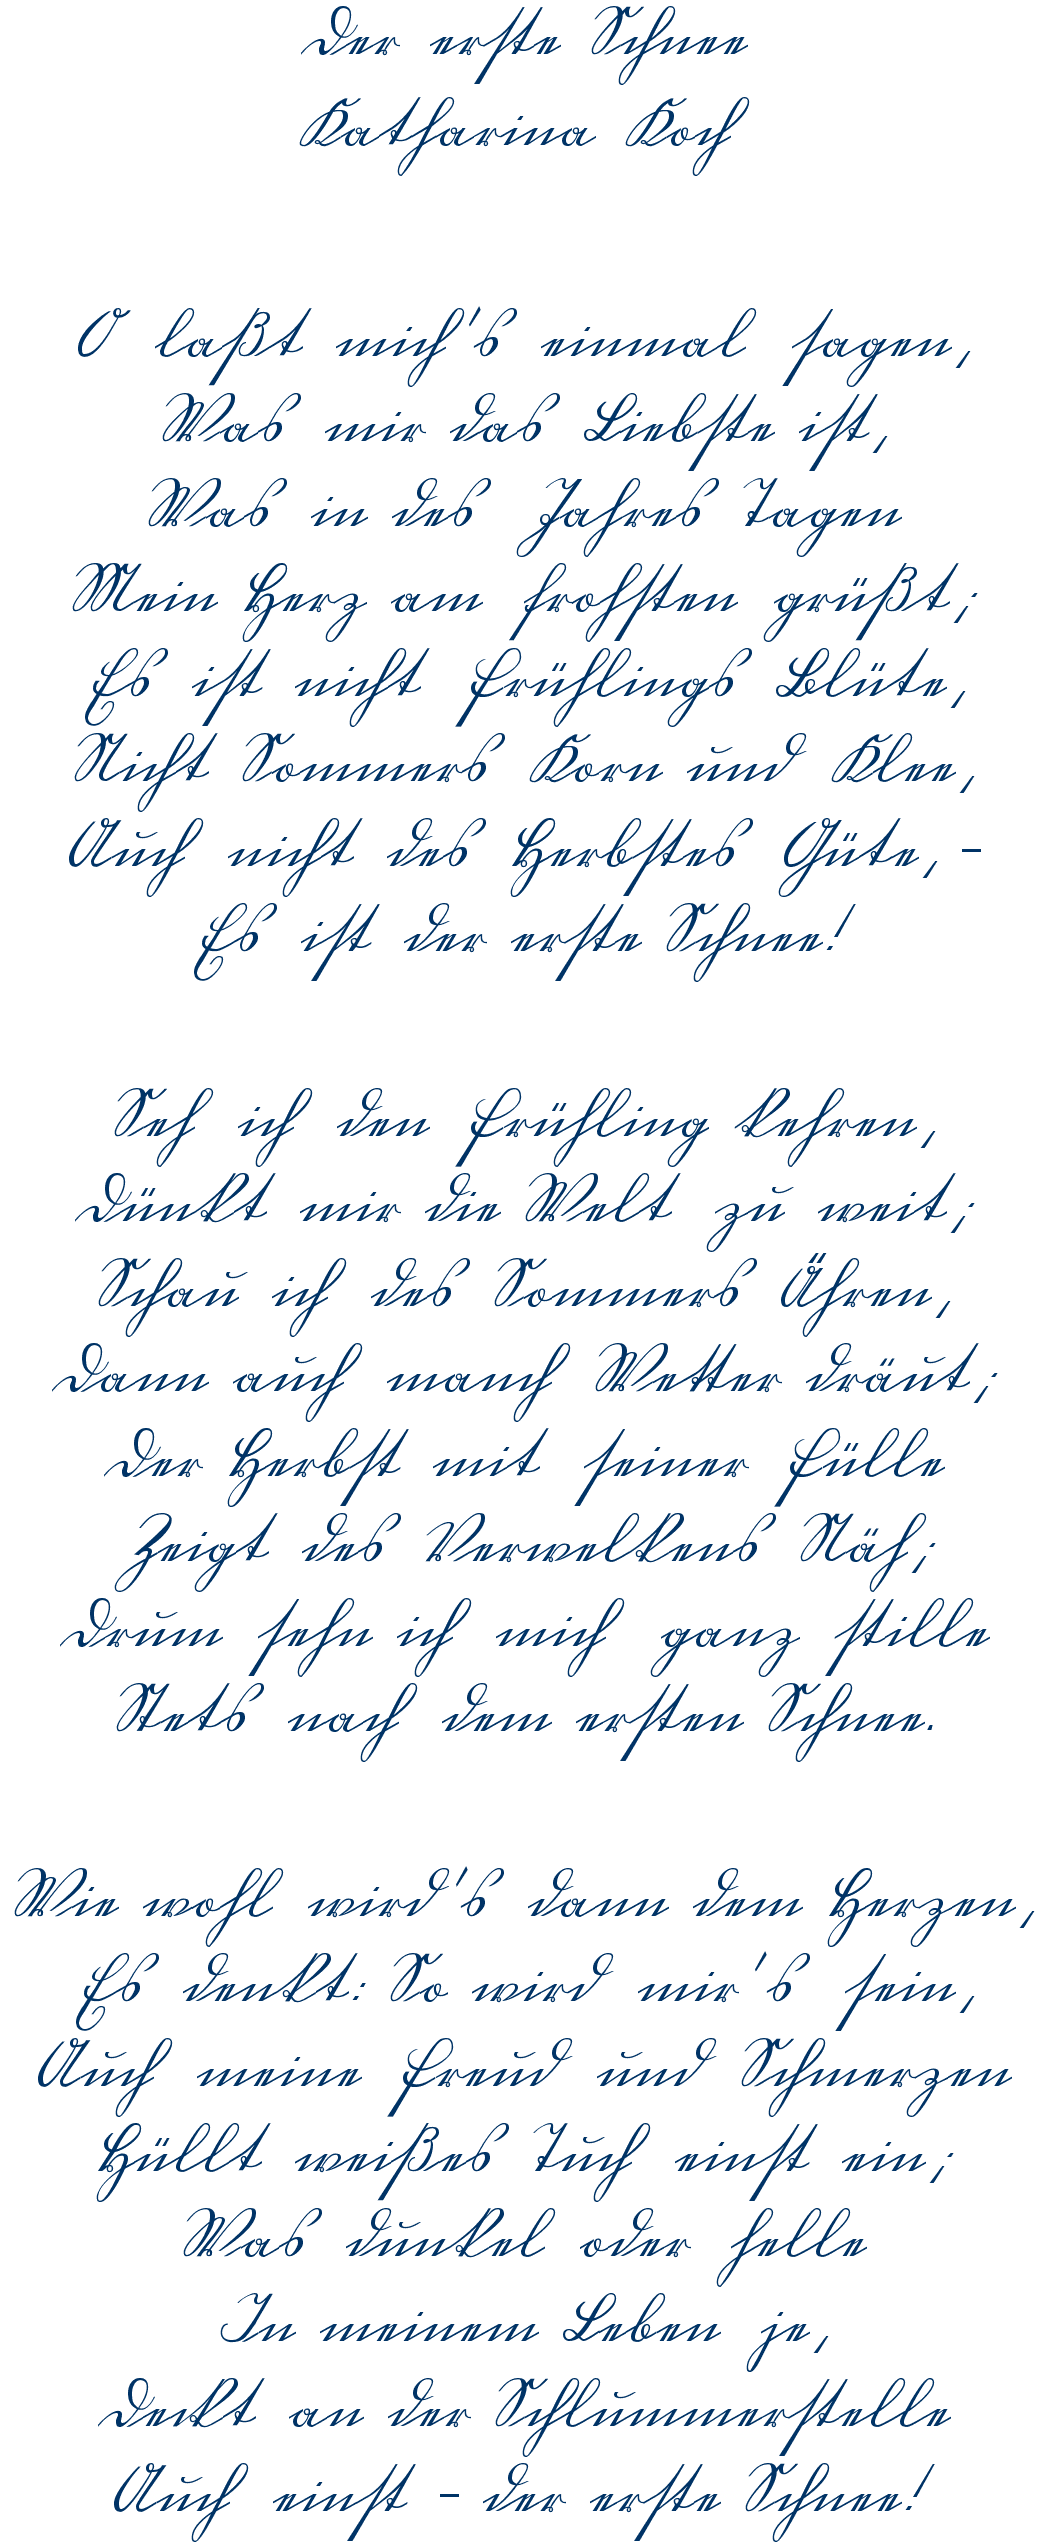 Der erste Schnee
Katharina Koch
O laßt mich's einmal sagen,
Was mir das Liebste ist,
Was in des Jahres Tagen
Mein Herz am frohsten grüßt;
Es ist nicht Frühlings Blüte,
Nicht Sommers Korn und Klee,
Auch nicht des Herbstes Güte, -
Es ist der erste Schnee!
Seh ich den Frühling kehren,
Dünkt mir die Welt zu weit;
Schau ich des Sommers Ähren,
Dann auch manch Wetter dräut;
Der Herbst mit seiner Fülle
Zeigt des Verwelkens Näh;
Drum sehn ich mich ganz stille
Stets nach dem ersten Schnee.
Wie wohl wird's dann dem Herzen,
Es denkt: So wird mir's sein,
Auch meine Freud und Schmerzen
Hüllt weißes Tuch einst ein;
Was dunkel oder helle
In meinem Leben je,
Deckt an der Schlummerstelle
Auch einst - der erste Schnee!